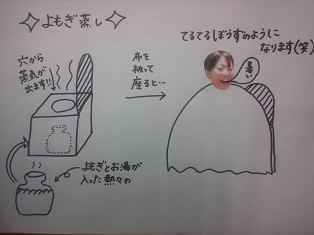 よもぎ蒸し
穴から
蒸気が
出ます!!
布を
被って
座ると…
てるてるぼうずのように
なります(笑)
暑い
よもぎとお湯が
入った熱々の